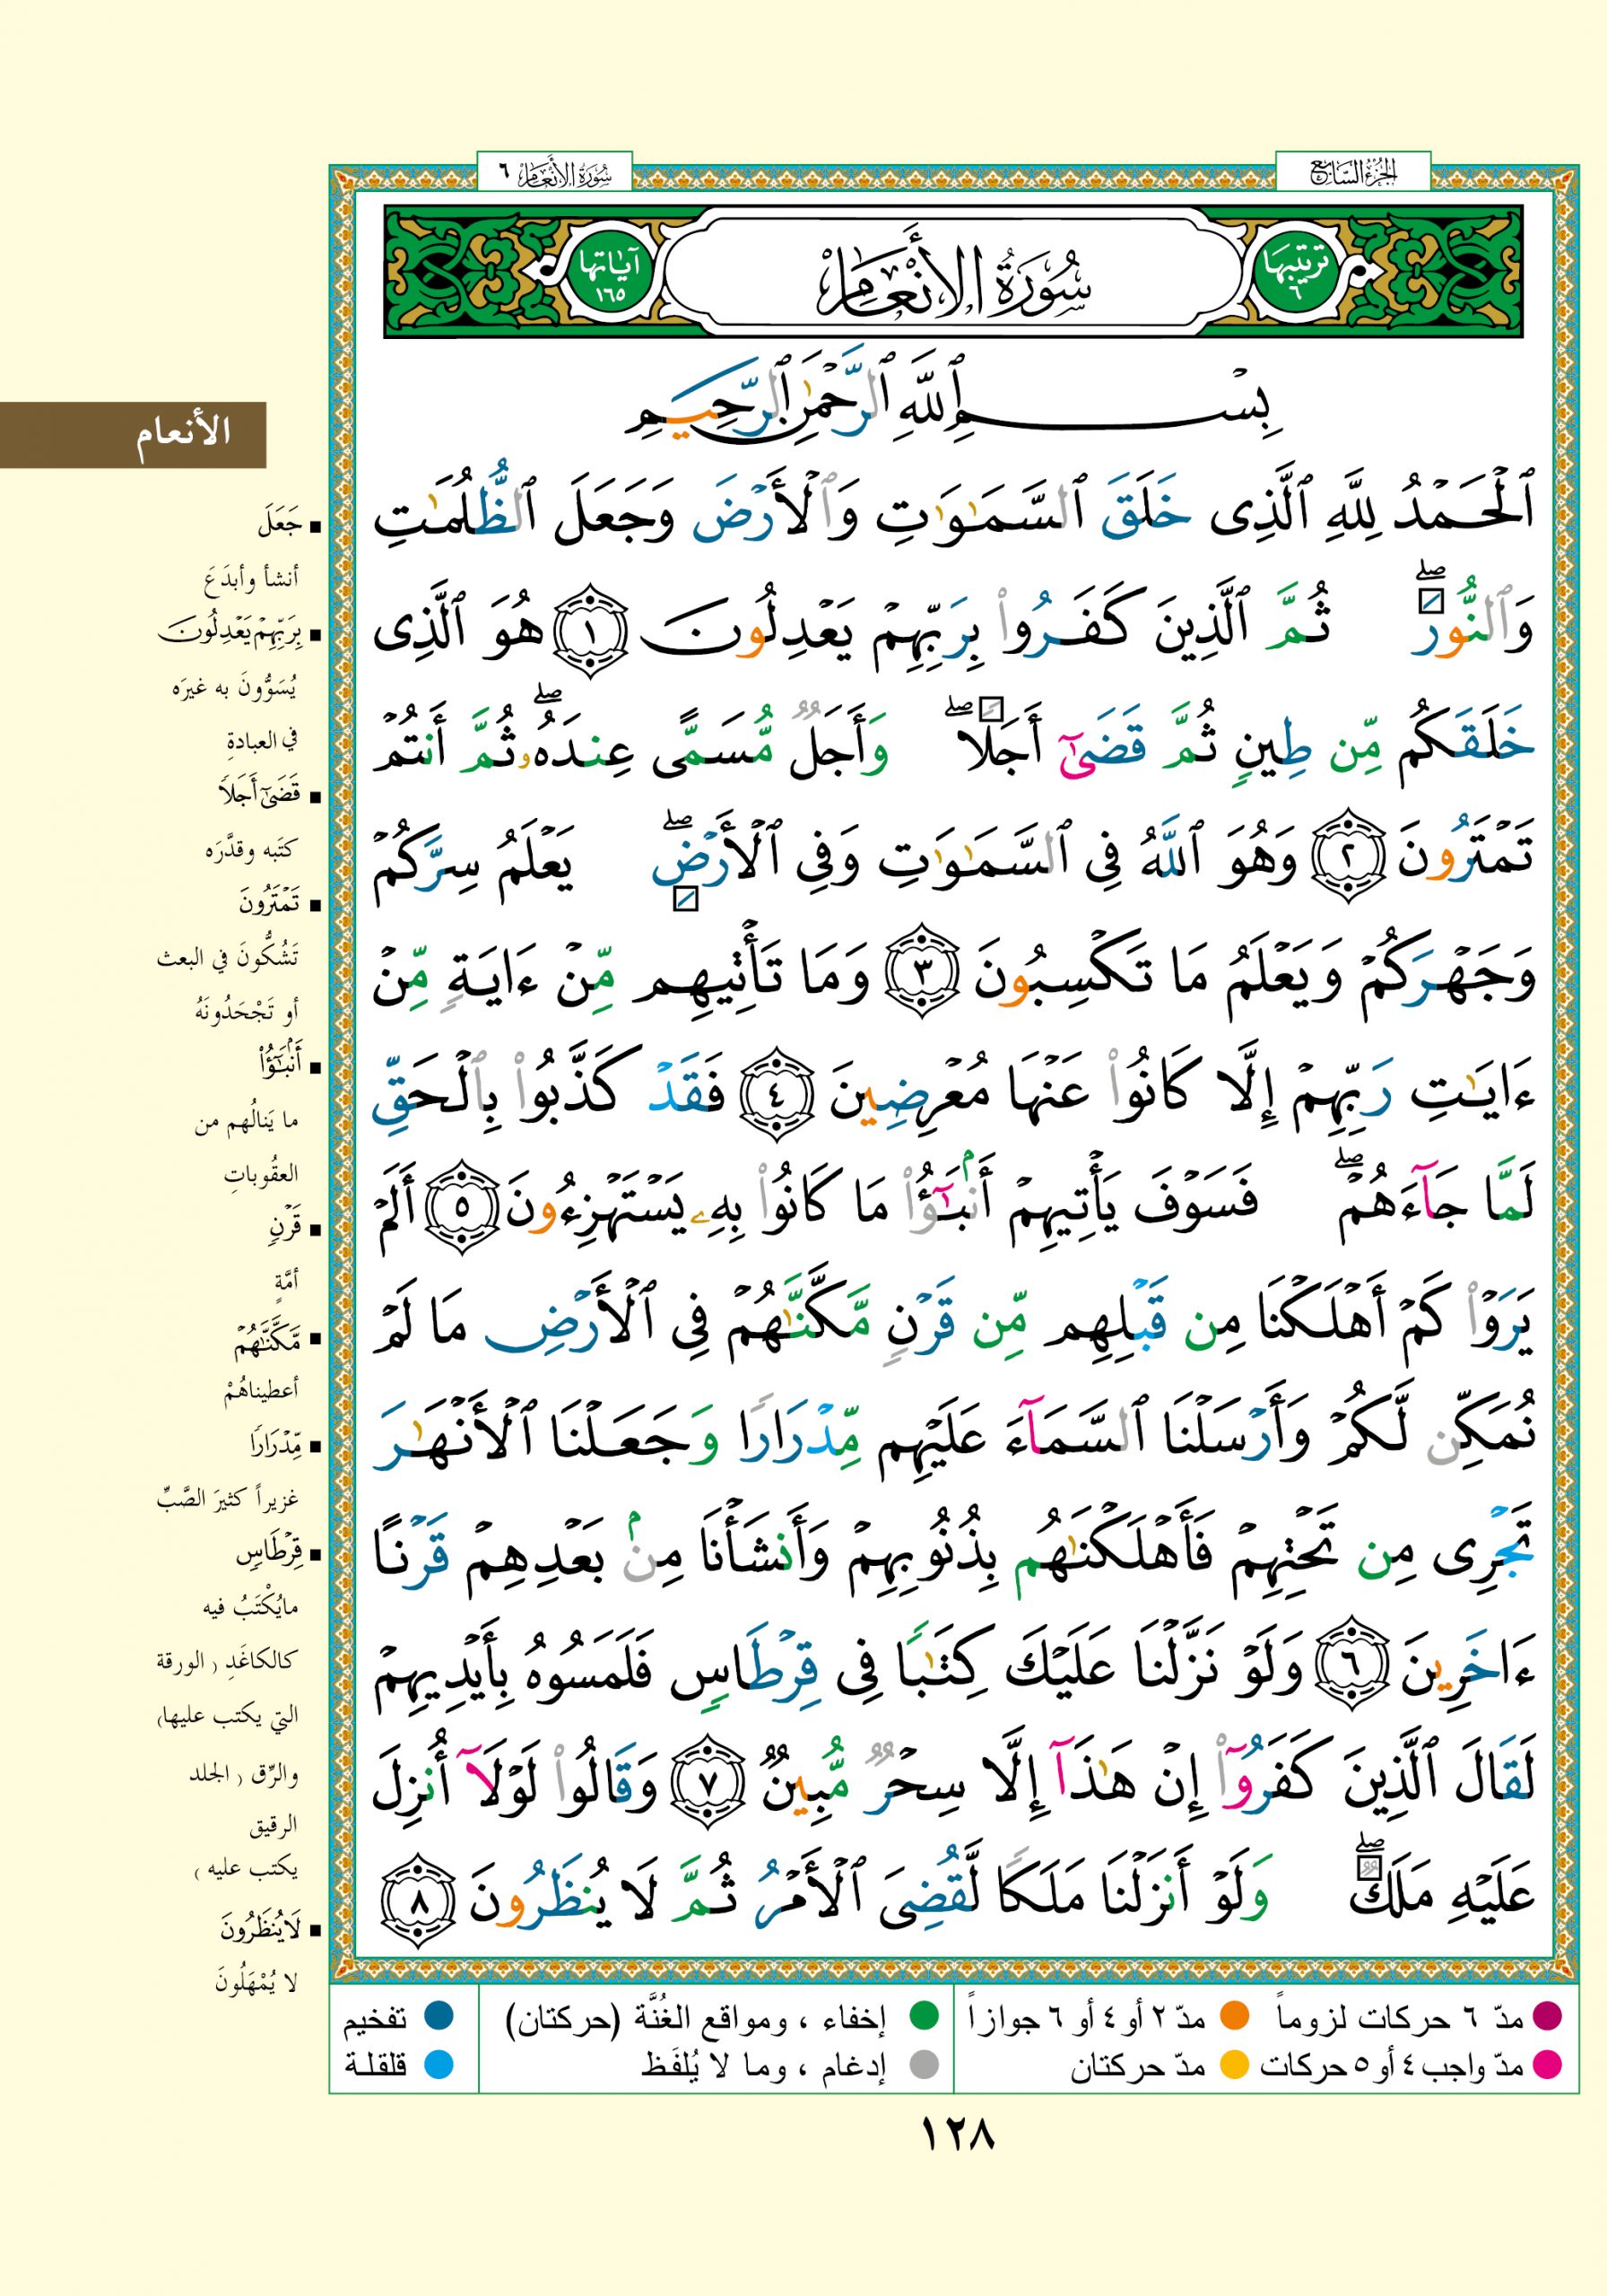 الجزء السابع
سورة الأنعام ٦
ترتيبها ٦
سُورَةُ الأَنْعَامِ
آياتها ١٦٥
بِسْمِ ٱللَّهِ ٱلرَّحْمَٰنِ ٱلرَّحِيمِ
ٱلْحَمْدُ لِلَّهِ ٱلَّذِى خَلَقَ ٱلسَّمَٰوَٰتِ وَٱلْأَرْضَ وَجَعَلَ ٱلظُّلُمَٰتِ
وَٱلنُّورَ ۖ ثُمَّ ٱلَّذِينَ كَفَرُوا۟ بِرَبِّهِمْ يَعْدِلُونَ ١ هُوَ ٱلَّذِى
خَلَقَكُم مِّن طِينٍ ثُمَّ قَضَىٰٓ أَجَلًا ۖ وَأَجَلٌ مُّسَمًّى عِندَهُۥ ۖ ثُمَّ أَنتُمْ
تَمْتَرُونَ ٢ وَهُوَ ٱللَّهُ فِى ٱلسَّمَٰوَٰتِ وَفِى ٱلْأَرْضِ ۖ يَعْلَمُ سِرَّكُمْ
وَجَهْرَكُمْ وَيَعْلَمُ مَا تَكْسِبُونَ ٣ وَمَا تَأْتِيهِم مِّنْ ءَايَةٍ مِّنْ
ءَايَٰتِ رَبِّهِمْ إِلَّا كَانُوا۟ عَنْهَا مُعْرِضِينَ ٤ فَقَدْ كَذَّبُوا۟ بِٱلْحَقِّ
لَمَّا جَآءَهُمْ ۖ فَسَوْفَ يَأْتِيهِمْ أَنۢبَٰٓؤُا۟ مَا كَانُوا۟ بِهِۦ يَسْتَهْزِءُونَ ٥ أَلَمْ
يَرَوْا۟ كَمْ أَهْلَكْنَا مِن قَبْلِهِم مِّن قَرْنٍ مَّكَّنَّٰهُمْ فِى ٱلْأَرْضِ مَا لَمْ
نُمَكِّن لَّكُمْ وَأَرْسَلْنَا ٱلسَّمَآءَ عَلَيْهِم مِّدْرَارًا وَجَعَلْنَا ٱلْأَنْهَٰرَ
تَجْرِى مِن تَحْتِهِمْ فَأَهْلَكْنَٰهُم بِذُنُوبِهِمْ وَأَنشَأْنَا مِنۢ بَعْدِهِمْ قَرْنًا
ءَاخَرِينَ ٦ وَلَوْ نَزَّلْنَا عَلَيْكَ كِتَٰبًا فِى قِرْطَاسٍ فَلَمَسُوهُ بِأَيْدِيهِمْ
لَقَالَ ٱلَّذِينَ كَفَرُوٓا۟ إِنْ هَٰذَآ إِلَّا سِحْرٌ مُّبِينٌ ٧ وَقَالُوا۟ لَوْلَآ أُنزِلَ
عَلَيْهِ مَلَكٌ ۖ وَلَوْ أَنزَلْنَا مَلَكًا لَّقُضِىَ ٱلْأَمْرُ ثُمَّ لَا يُنظَرُونَ ٨
الأنعام
جَعَلَ
أنشأ وأبدَعَ
بِرَبِّهِمْ يَعْدِلُونَ
يُسَوُّونَ به غيرَه
في العبادةِ
قَضَىٰٓ أَجَلًا
كتَبه وقدَّرَه
تَمْتَرُونَ
تَشُكُّونَ في البعث
أو تَجْحَدُونَهُ
أَنۢبَٰٓؤُا۟
ما يَنالُهم من
العقُوباتِ
قَرْنٍ
أمَّةٍ
مَّكَّنَّٰهُمْ
أعطيناهُمْ
مِّدْرَارًا
غزيراً كثيرَ الصَّبِّ
قِرْطَاسٍ
مايُكْتَبُ فيه
كالكاغَدِ ( الورقة
التي يكتب عليها)
والرِّق ( الجلد
الرقيق
يكتب عليه )
لَا يُنظَرُونَ
لا يُمْهَلُونَ
مدّ ٦ حركات لزوماً
مدّ ٢ أو ٤ أو ٦ جوازاً
إخفاء ، ومواقع الغُنَّة (حركتان)
تفخيم
مدّ واجب ٤ أو ٥ حركات
مدّ حركتان
إدغام ، وما لا يُلفَظ
قلقلة
١٢٨